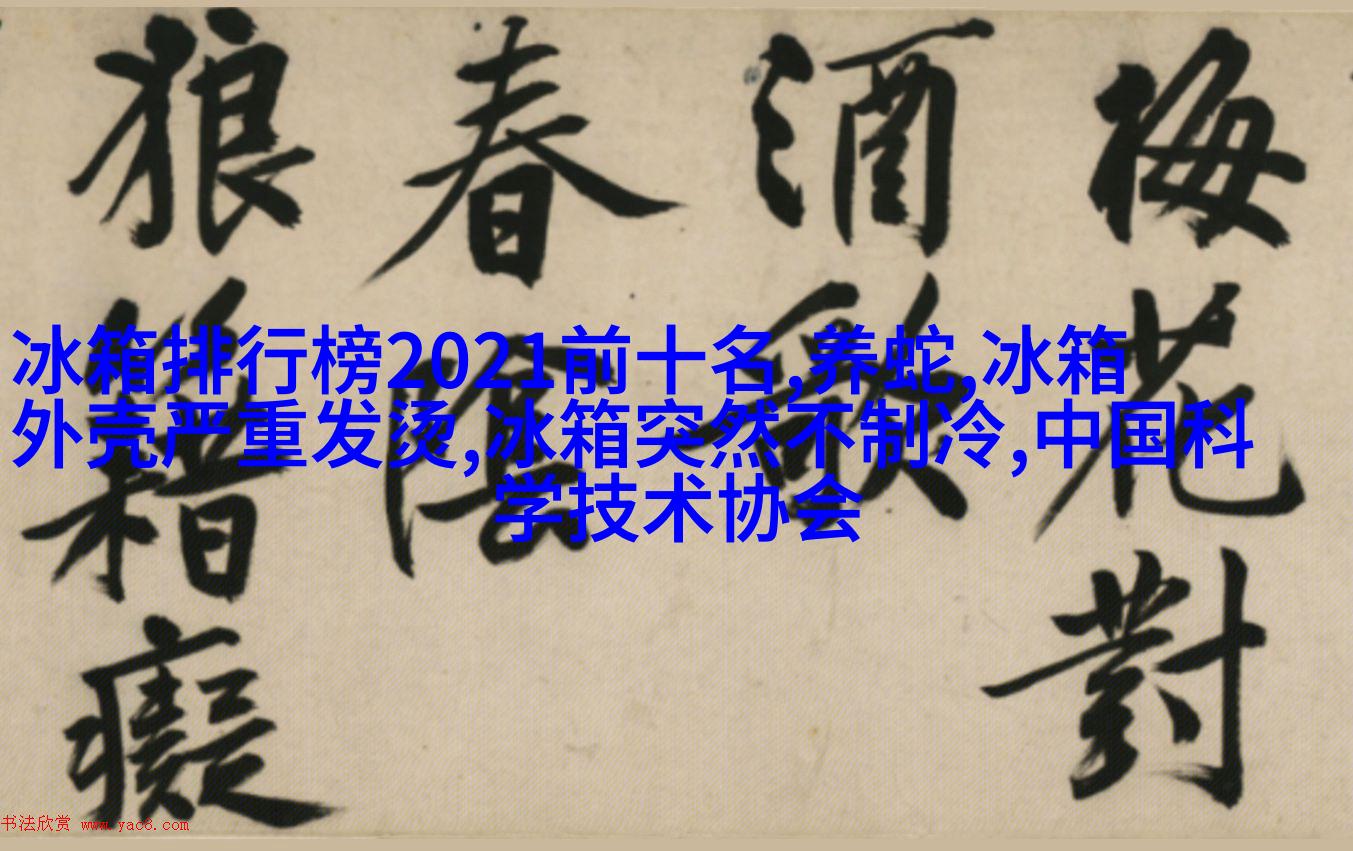 梅花對
酒
春
狼籍癡
冰箱排行榜2021前十名,养蛇,冰箱
外壳严重发烫,冰箱突然不制冷,中国科
学技术协会
书法欣赏 www.yac8.com